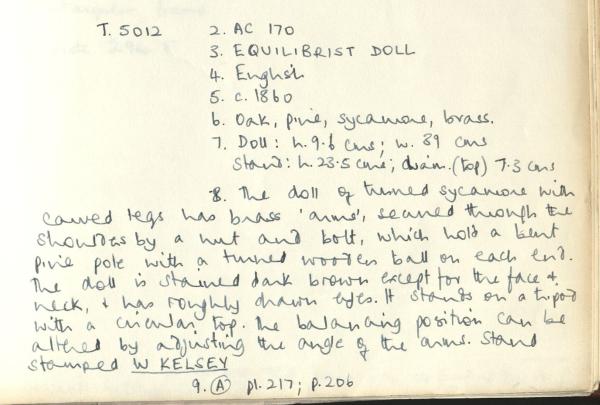 T. 5012 2. AC 170
3. EQUILIBRIST DOLL
4. English
5. c. 1860
6. Oak, pine, sycamore, brass.
7. Doll: h. 9.6 cms; w. 39 cms
Stand: h. 23.5 cms; diam. (top) 7.3 cms
8. The doll of turned sycamore with
carved legs has brass 'arms', secured through the
shoulders by a nut and bolt, which hold a bent
pine pole with a turned wooden ball on each end.
The doll is stained dark brown except for the face &
neck, & has roughly drawn eyes. It stands on a tripod
with a circular top. The balancing position can be
altered by adjusting the angle of the arms. Stand
stamped W KELSEY
9. (A) pl. 217; p. 206